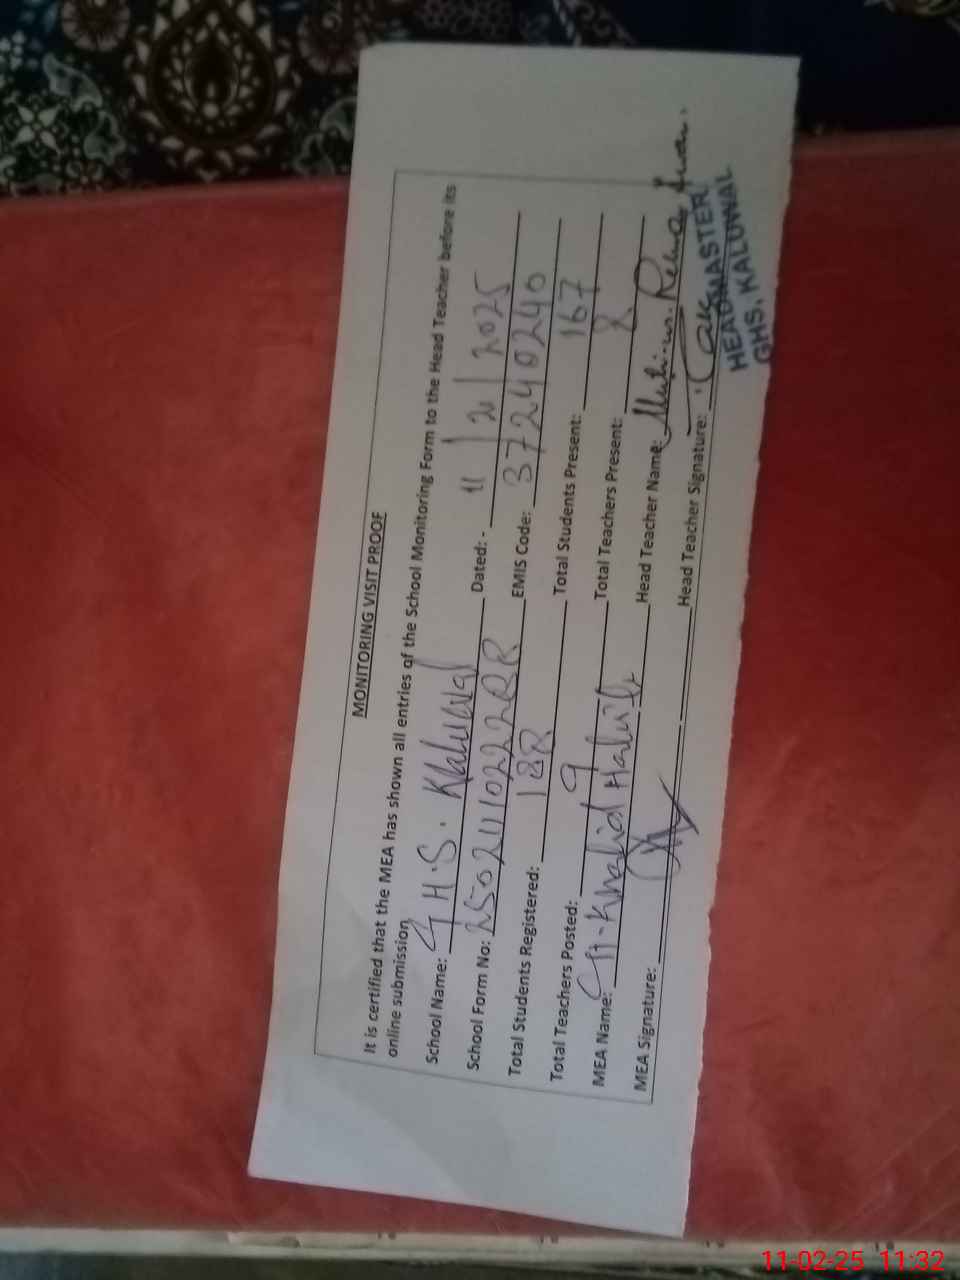 MONITORING VISIT PROOF
It is certified that the MEA has shown all entries of the School Monitoring Form to the Head Teacher before its
online submission
School Name: G H.S. Kaluwal Dated: - 11/2/2025
School Form No: EMIS Code: 37240240
Total Students Registered: 188 Total Students Present: 167
Total Teachers Posted: 9 Total Teachers Present: 8
MEA Name: Khalid Head Teacher Name:
MEA Signature: Head Teacher Signature:
HEADMASTER
GHS. KALUWAL
11-02-25 11:32